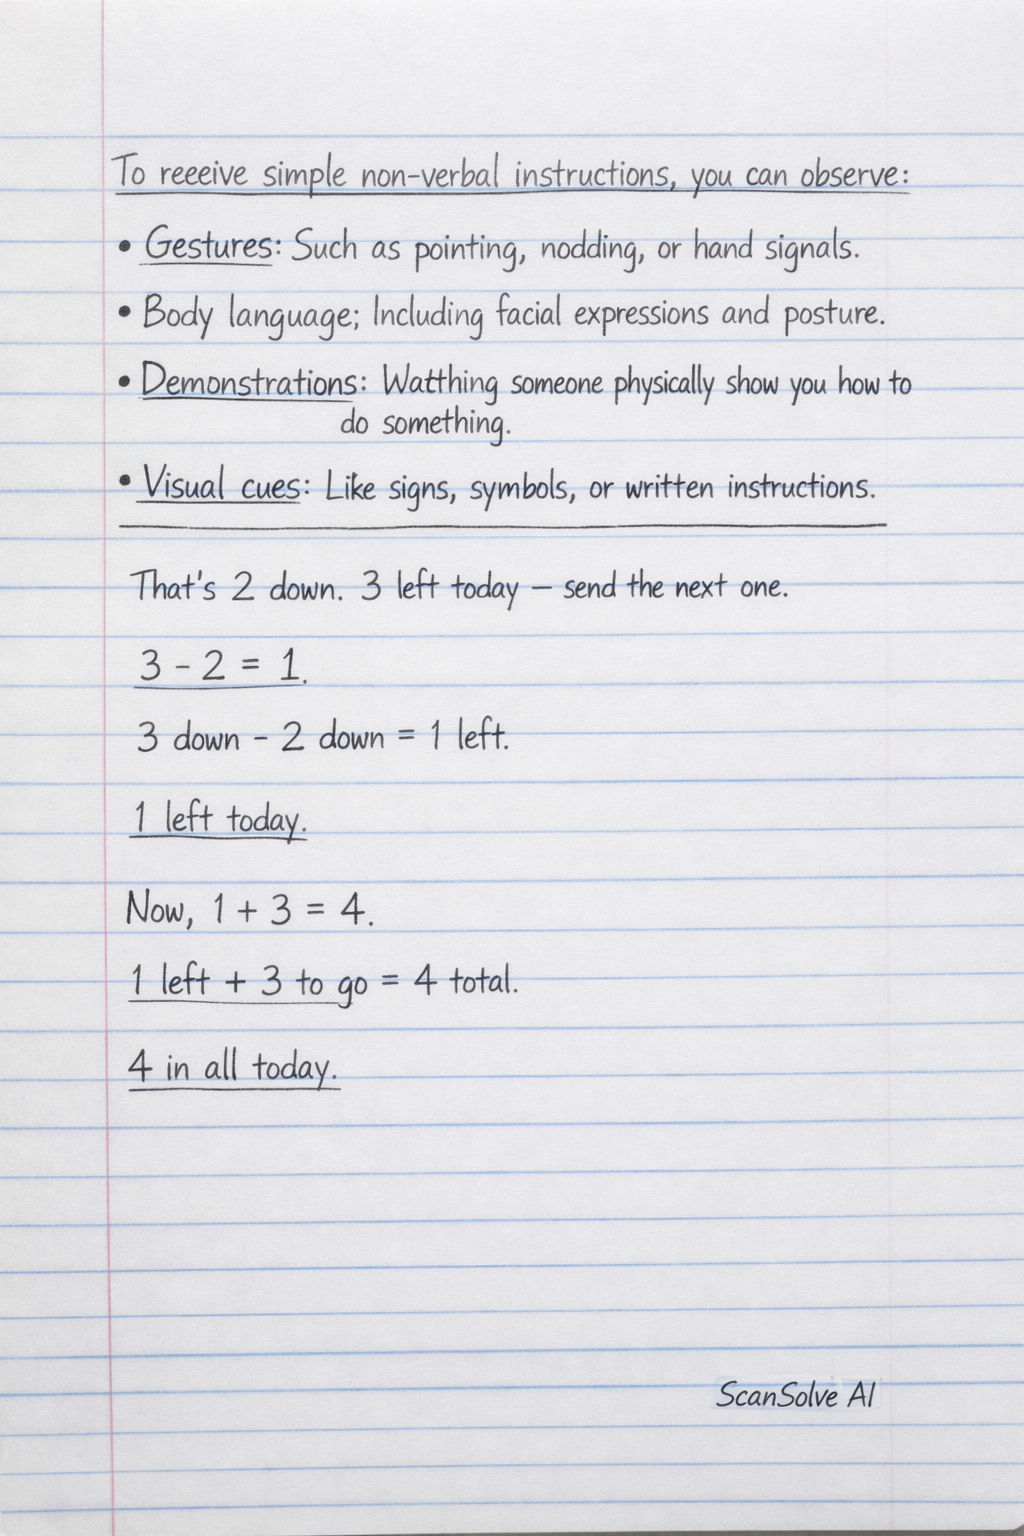 To reeeive simple non-verbal instructions, you can observe:
• Gestures: Such as pointing, nodding, or hand signals.
• Body language; Including facial expressions and posture.
• Demonstrations: Watthing someone physically show you how to
do something.
• Visual cues: Like signs, symbols, or written instructions.
That's 2 down. 3 left today – send the next one.
3 - 2 = 1.
3 down - 2 down = 1 left.
1 left today.
Now, 1 + 3 = 4.
1 left + 3 to go = 4 total.
4 in all today.
ScanSolve AI